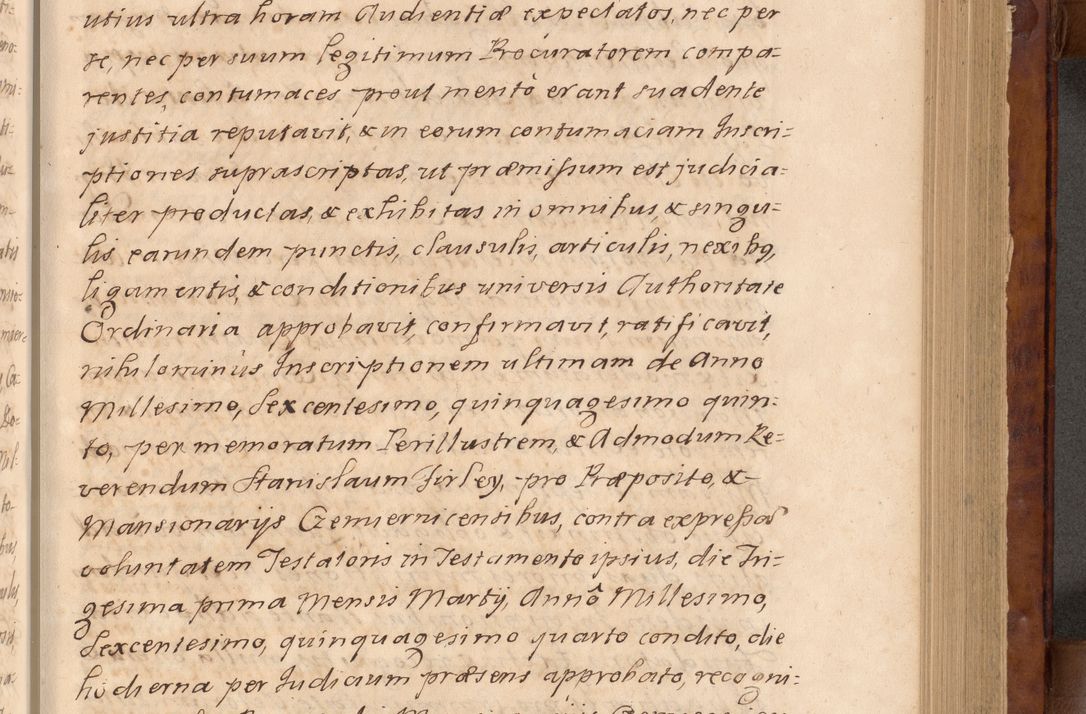 utius ultra horam Audientiæ expectatos, nec per
se, nec per suum legitimum Procuratorem compa-
rentes, contumaces prout meritò erant suadente
justitia reputavit, & in eorum contumaciam Inscri=
ptiones suprascriptas, ut præmissum est judicia=
liter productas, & exhibitas in omnibus, & singu=
lis earundem punctis, clausulis, articulis, nexibq,
ligamentis, & conditionibus universis Authoritate
Ordinaria approbavit, confirmavit, ratificavit,
nihilominùs Inscriptionem ultimam de Anno
Millesimo, Sexcentesimo, quinquagesimo quin=
to, per memoratum Perillustrem, & Admodum Re=
verendum Stanislaum Firley, pro Præposito, &
Mansionarijs Czemiernicensibus, contra expressã
voluntatem Testatoris in Testamento ipsius, die Tri=
gesima prima Mensis Martÿ, Annô Millesimo,
Sexcentesimo, quinquagesimo quarto condito, die
hodierna per Judicium præsens approbato, recogni=